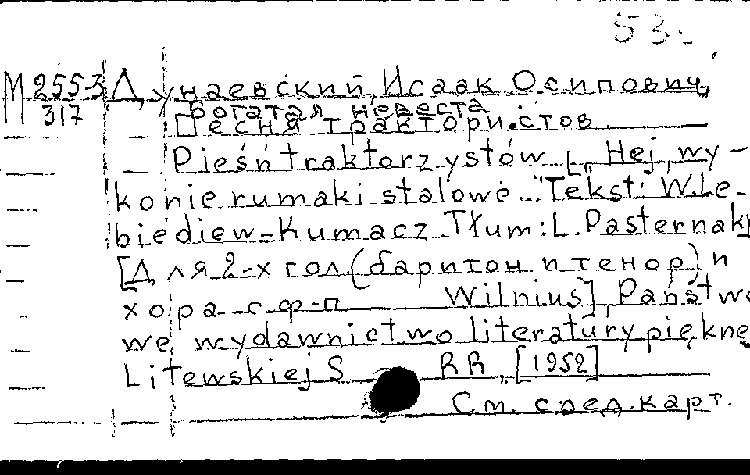 53
М 2553 Дунаевский, Исаак Осипович,
317 Богатая невеста
[Песня трактористов
Pieśń traktorzystów. [„Hej, wy
konie rumaki stalowe..." Tekst: W. Le-
biediew-Kumacz. Tłum: L. Pasternak]
[Для 2-х гол (баритон и тенор) и
хора с ф-п Wilnius], Państwo
we wydawnictwo literatury pięknej
Litewskiej S RR, [1952]
См. след. карт.